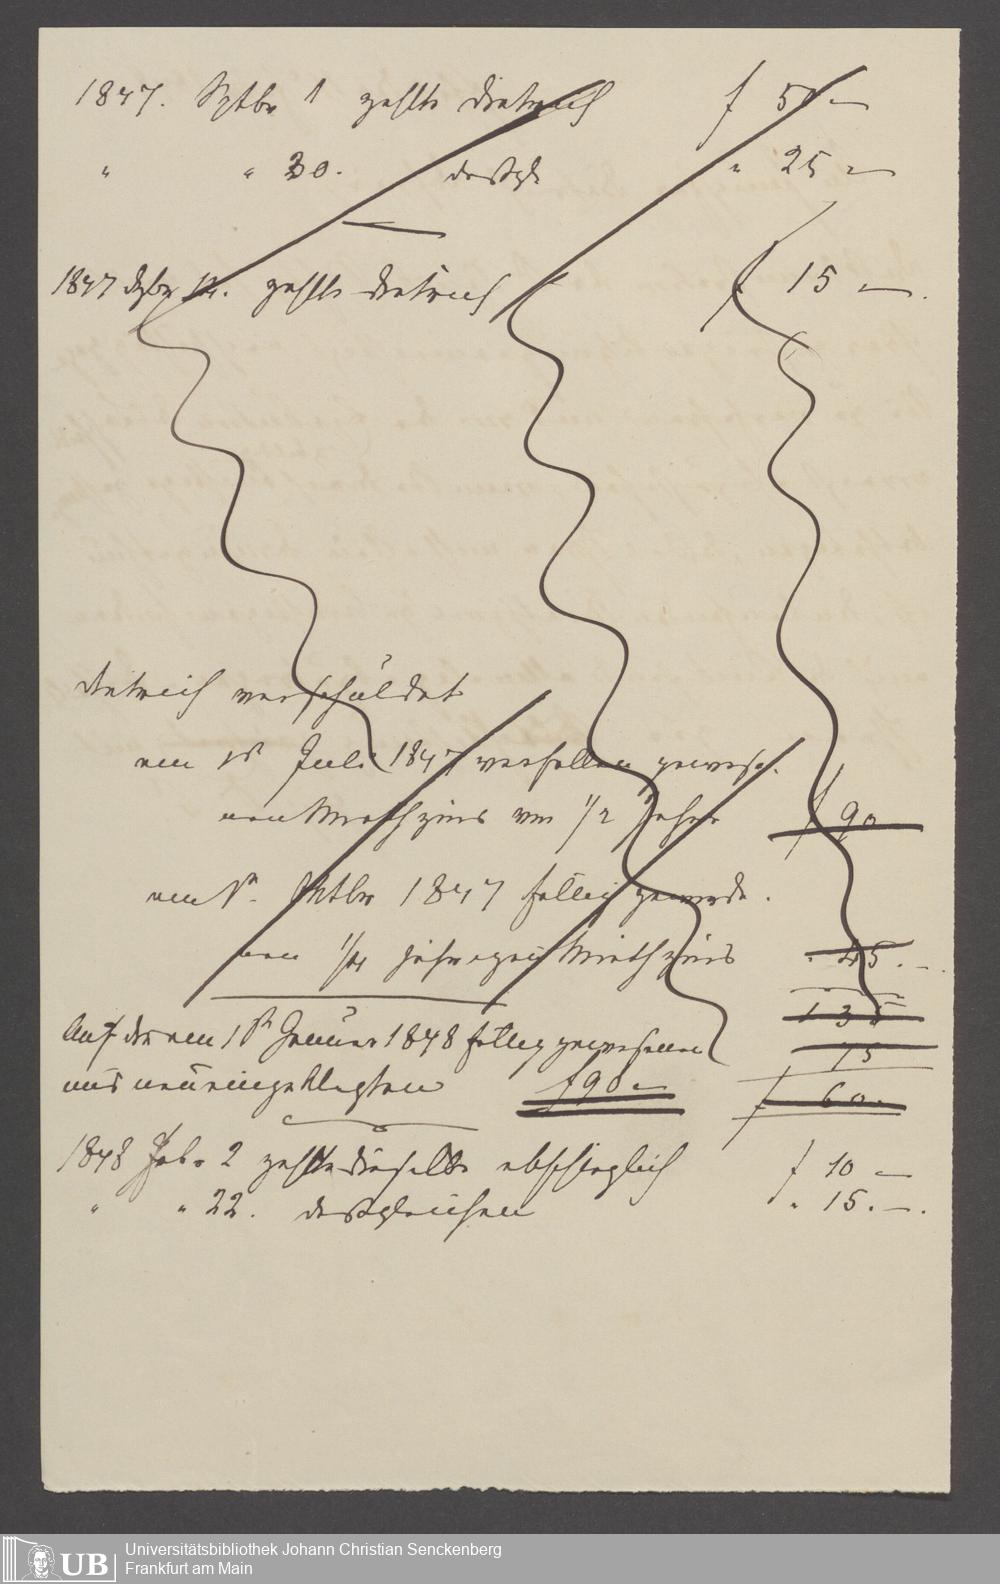 1847. Sptbr 1 zahlte Dietreich f 50 —
" " 30. desgl. " 25 —
1847 Dzbr 14. zahlte Dietreich f 15 —.
Dietreich verschuldet
am 1n Juli 1847 verfallen gewese-
nen Miethzins von 1/2 Jahr f 90
am 1n. Oktbr 1847 fällig geworde-
nen 1/4 jährigen Miethzins " 45. —.
135
75
f 60.
Auf den am 1n Januar 1848 fällig gewesenen
und neu eingeklagten f 90 —
1848 Febr 2 zahlte dieselbe abschläglich f 10 —
" " 22. desgleichen " 15. —.
UB
Universitätsbibliothek Johann Christian Senckenberg
Frankfurt am Main